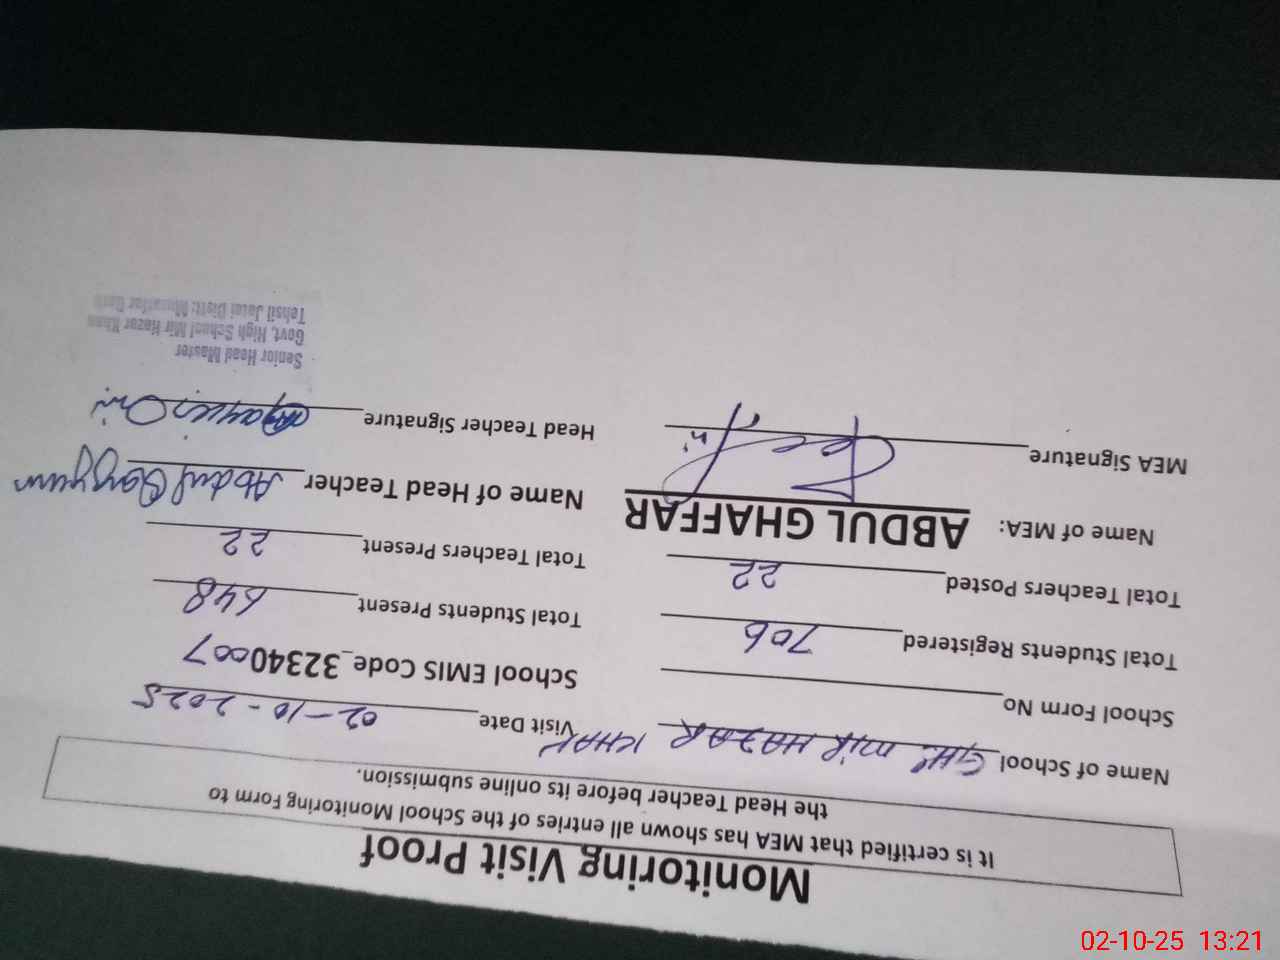 Monitoring Visit Proof
It is certified that MEA has shown all entries of the School Monitoring Form to
the Head Teacher before its online submission.
Name of School GHS MIR HAZAR KHAN Visit Date 02-10-2025
School Form No School EMIS Code_32340007
Total Students Registered 706 Total Students Present 648
Total Teachers Posted 22 Total Teachers Present 22
Name of MEA: ABDUL GHAFFAR Name of Head Teacher Abdul Qayyum
MEA Signature Head Teacher Signature
Senior Head Master
Govt. High School Mir Hazar Khan
Tehsil Jatoi Distt: Muzaffar Garh
02-10-25 13:21